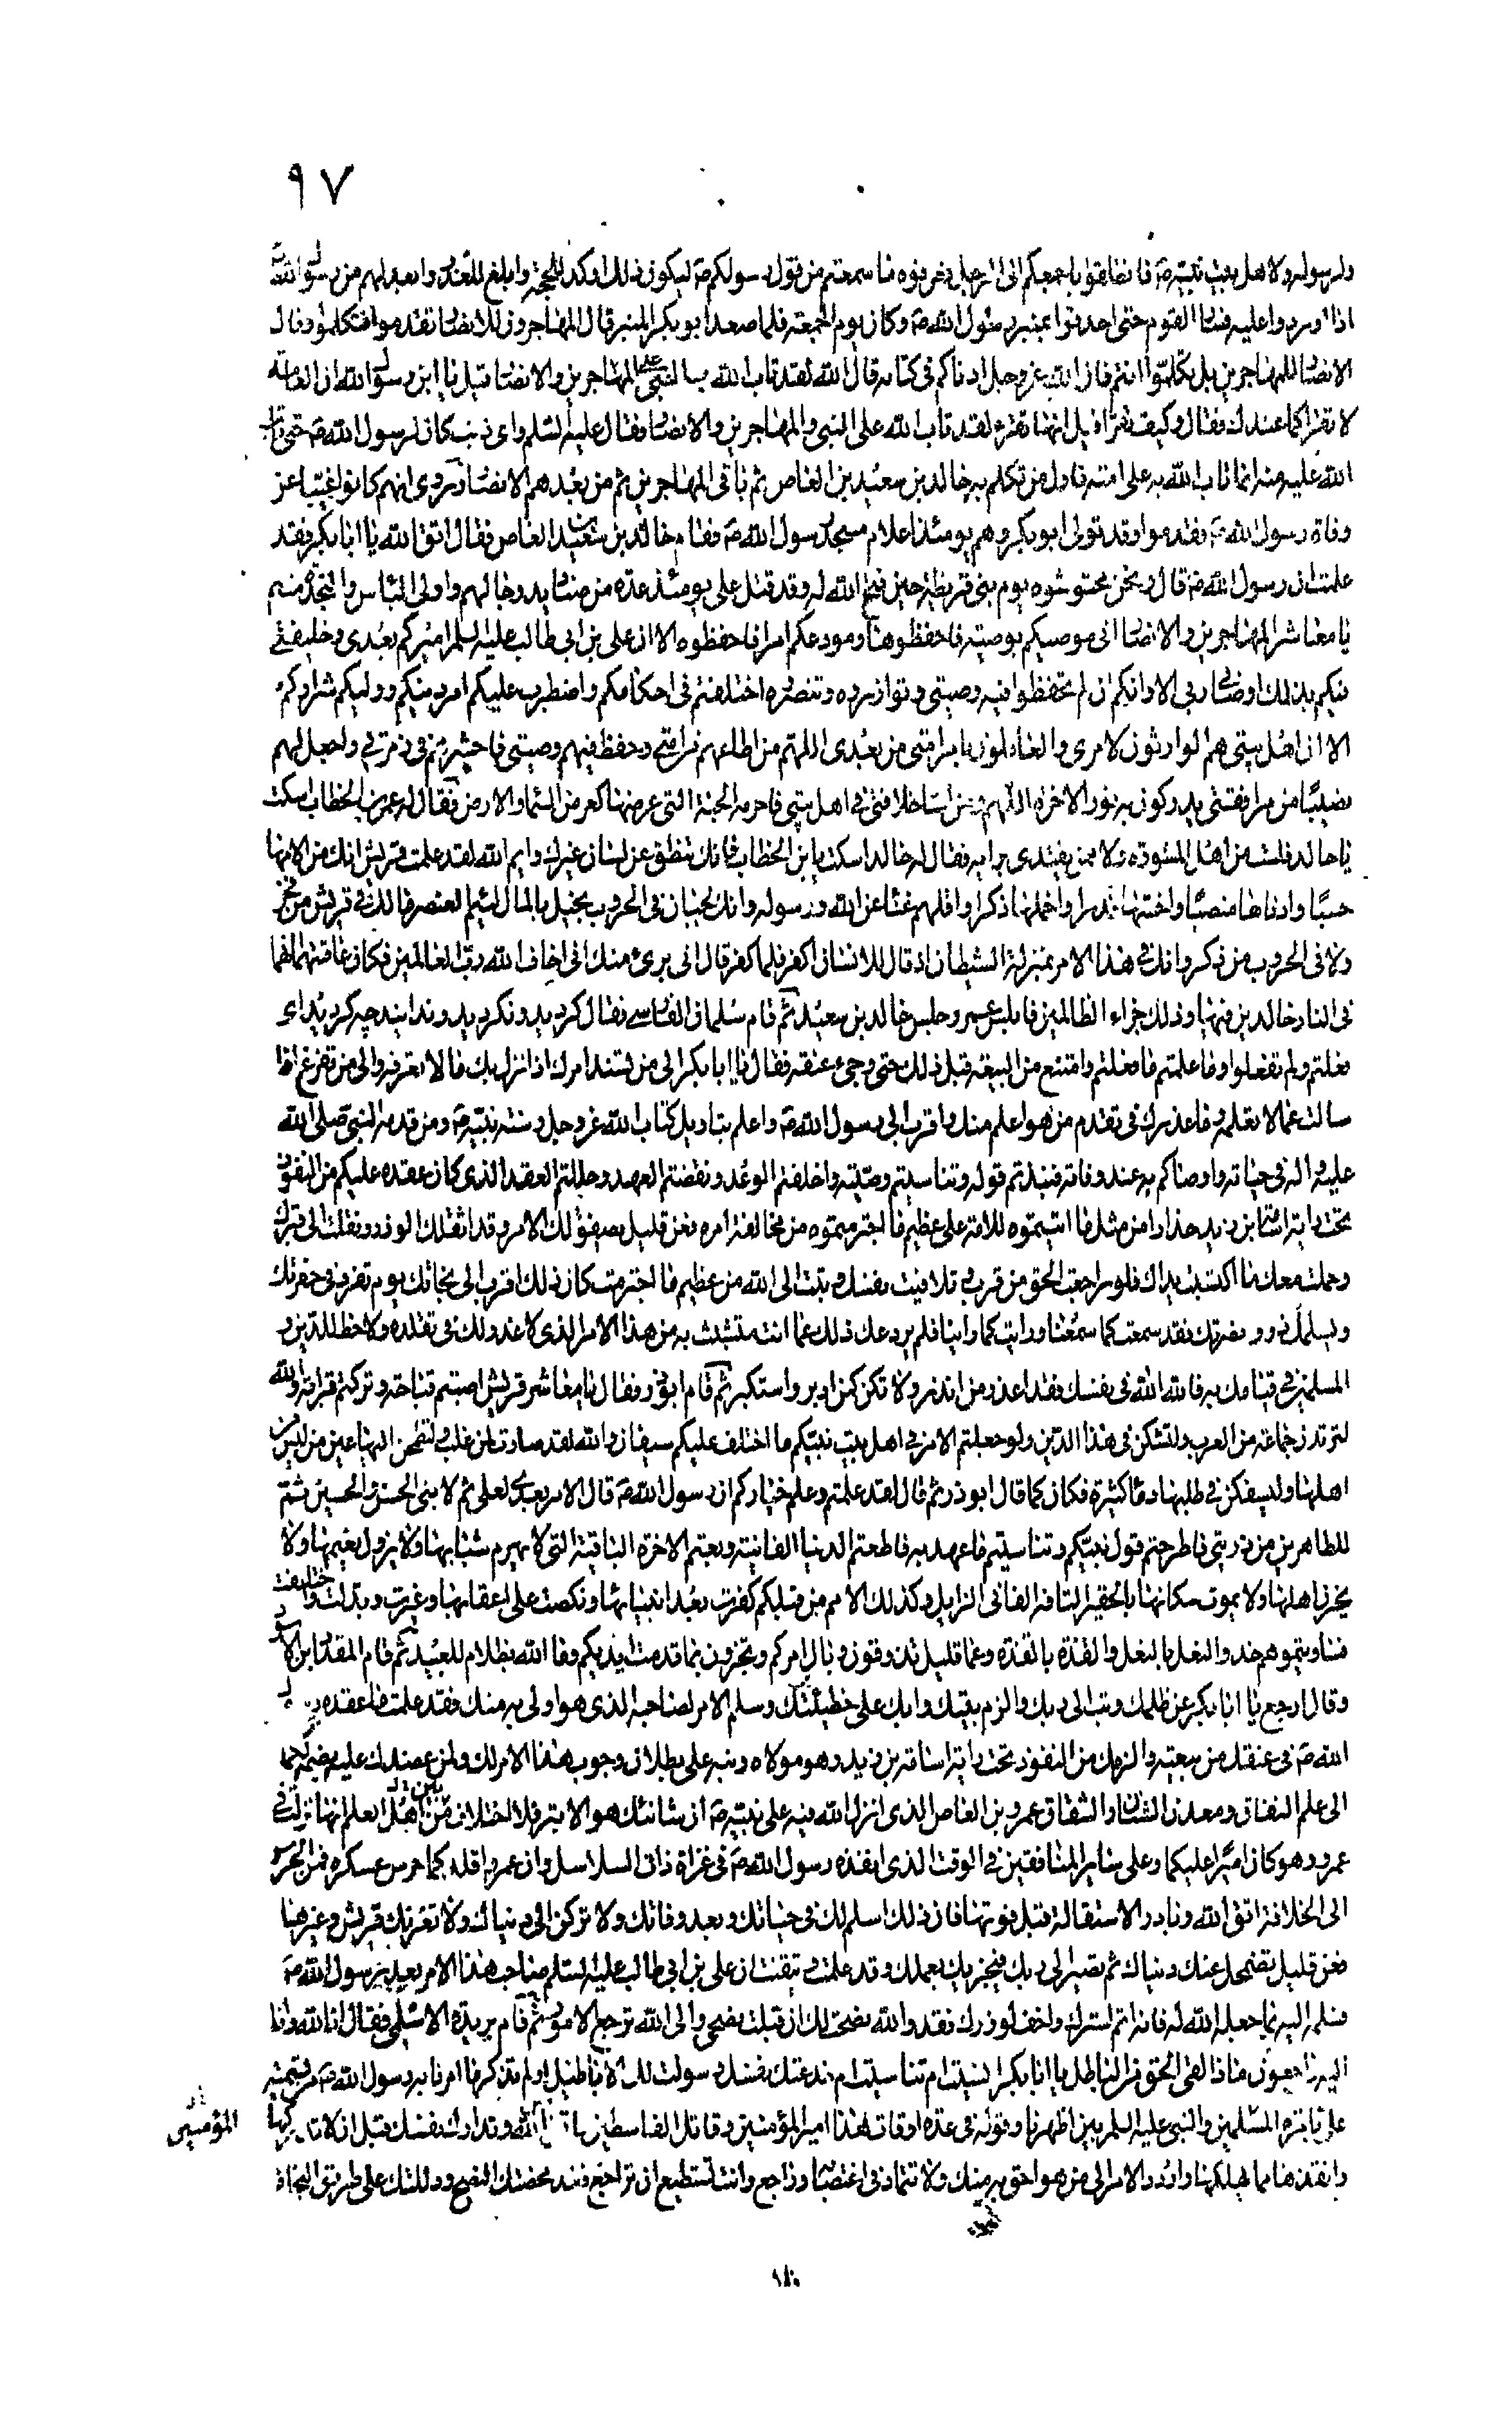 ٩٧
ولرسوله ولاهل بيت نبيه ص فانطلقوا باجمعكم الى الرجل فعرفوه ما سمعتم من قول رسولكم ص ليكون ذلك اوكد للحجة وابلغ للعذر وابعد لهم من رسول الله
اذا وردوا عليه فسار القوم حتى احدقوا بمنبر رسول الله ص وكان يوم الجمعة فلما صعد ابوبكر المنبر قال المهاجرون للانصار تقدموا فتكلموا وقال
الانصار للمهاجرين بل تكلموا انتم فان الله عز وجل ادناكم في كتابه قال الله لقد تاب الله بالنبي على المهاجرين والانصار قيل يا ابن رسول الله ان العامة
لا تقرا كما عندك فقال وكيف تقراء قيل انها تقرء لقد تاب الله على النبي والمهاجرين والانصار فقال عليه السلم واى ذنب كان لرسول الله ص حتى تاب
الله عليه منه انما تاب الله به على امته فاول من تكلم به خالد بن سعيد بن العاص ثم باقى المهاجرين ثم من بعدهم الانصار وروى انهم كانوا غيبا عن
وفاة رسول الله ص فقدموا وقد تولى ابو بكر وهم يومئذ اعلام مسجد رسول الله ص فقام خالد بن سعيد بن العاص فقال اتق الله يا ابا بكر فقد
علمت ان رسول الله ص قال ونحن محتوشوه يوم بنى قريظة حين فتح الله له وقد قتل على يومئذ عدة من صناديد رجالهم واولى الباس والنجدة منهم
يا معاشر المهاجرين والانصار انى موصيكم بوصية فاحفظوها ومودعكم امرا فاحفظوه الا ان على بن ابى طالب عليه السلم اميركم بعدى وخليفتى
فيكم بذلك اوصانى ربى الا وانكم ان لم تحفظوا فيه وصيتى وتوازروه وتنصروه اختلفتم فى احكامكم واضطرب عليكم امر دينكم ووليكم شراركم
الا ان اهل بيتى هم الوارثون لامرى والعاملون بامر امتى من بعدى اللهم من اطاعهم من امتى وحفظ فيهم وصيتى فاحشرهم فى زمرتى واجعل لهم
نصيبا من مرافقتى يدركون به نور الاخرة اللهم ومن اساء خلافتى فى اهل بيتى فاحرمه الجنة التى عرضها كعرض السماء والارض فقال له عمر بن الخطاب اسكت
يا خالد فلست من اهل المشورة ولا ممن يقتدى برايه فقال له خالد اسكت يابن الخطاب فانك تنطق عن لسان غيرك وايم الله لقد علمت قريش انك من الامها
حسبا وادناها منصبا واخسها قدرا واخملها ذكرا واقلهم غناء عن الله ورسوله وانك لجبان فى الحروب بخيل بالمال لئيم العنصر مالك فى قريش من فخر
ولا فى الحروب من ذكر وانك فى هذا الامر بمنزلة الشيطان اذ قال للانسان اكفر فلما كفر قال انى برىء منك انى اخاف الله رب العالمين فكان عاقبتهما انهما
فى النار خالدين فيها وذلك جزاء الظالمين فابلس عمر وجلس خالد بن سعيد ثم قام سلمان الفارسى فقال كرديد ونكرديد وندانيد چه كرديد اى
فعلتم ولم تفعلوا وما علمتم ما فعلتم وامتنع من البيعة قبل ذلك حتى وجىء عنقه فقال يا ابا بكر الى من تسند امرك اذا نزل بك ما لا تعرفه والى من تفزع اذا
سالت عما لا تعلمه وما عذرك فى تقدم من هو اعلم منك واقرب الى رسول الله ص واعلم بتاويل كتاب الله عز وجل وسنة نبيه ص ومن قدمه النبى صلى الله
عليه واله فى حياته واوصاكم به عند وفاته فنبذتم قوله وتناسيتم وصيته واخلفتم الوعد ونقضتم العهد وحللتم العقد الذى كان عقده عليكم من النفوذ
تحت راية اسامة بن زيد حذرا من مثل ما اتيتموه للامة على عظيم ما اجترمتموه من مخالفة امره فعن قليل يصفو لك الامر وقد اثقلك الوزر ونقلت الى قبرك
وحملت معك ما اكتسبت يداك فلو راجعت الحق من قرب وتلافيت نفسك وتبت الى الله من عظيم ما اجترمت كان ذلك اقرب الى نجاتك يوم تفرد فى حفرتك
ويسلمك ذوو نصرتك فقد سمعت كما سمعنا ورايت كما راينا فلم يردعك ذلك عما انت متشبث به من هذا الامر الذى لا عذر لك فى تقلده ولا حظ للدين و
المسلمين فى قيامك به فالله الله فى نفسك فقد اعذر من انذر ولا تكن كمن ادبر واستكبر ثم قام ابوذر فقال يا معاشر قريش اصبتم قباحة وتركتم قرابة والله
لترتدن جماعة من العرب ولتشكن فى هذا الدين ولو جعلتم الامر فى اهل بيت نبيكم ما اختلف عليكم سيفان والله لقد صارت لمن غلب ولتطمحن اليها عين من ليس من
اهلها وليسفكن فى طلبها دماء كثيرة فكان كما قال ابوذر ثم قال لقد علمتم وعلم خياركم ان رسول الله ص قال الامر بعدى لعلى ثم لابنى الحسن والحسين ثم
للطاهرين من ذريتى فاطرحتم قول نبيكم وتناسيتم ما عهد به فاطعتم الدنيا الفانية وبعتم الاخرة الباقية التى لا يهرم شبابها ولا يزول نعيمها ولا
يحزن اهلها ولا يموت سكانها بالحقير التافه الفانى الزايل وكذلك الامم من قبلكم كفرت بعد انبيائها ونكصت على اعقابها وغيرت وبدلت واختلفت
فساويتموهم حذو النعل بالنعل والقذة بالقذة وعما قليل تذوقون وبال امركم وتجزون بما قدمت ايديكم وما الله بظلام للعبيد ثم قام المقداد بن الاسود
وقال ارجع يا ابا بكر عن ظلمك وتب الى ربك والزم بيتك وابك على خطيئتك وسلم الامر لصاحبه الذى هو اولى به منك فقد علمت ما عقده رسول
الله ص فى عنقك من بيعته والزمك من النفوذ تحت راية اسامة بن زيد وهو مولاه ونبه على بطلان وجوب هذا الامر لك ولمن عضدك عليه بضمه لكما
الى علم النفاق ومعدن الشنان والشقاق عمرو بن العاص الذى انزل الله فيه على نبيه ص ان شانئك هو الابتر فلا اختلاف بين اهل العلم انها نزلت فى
عمرو وهو كان اميرا عليكما وعلى ساير المنافقين فى الوقت الذى انفذه رسول الله ص فى غزاة ذات السلاسل وان عمروا قلدكما حرس عسكره فمن الحرس
الى الخلافة اتق الله وبادر الاستقالة قبل فوتها فان ذلك اسلم لك فى حياتك وبعد وفاتك ولا تركن الى دنياك ولا تغرنك قريش وغيرها
فعن قليل تضمحل عنك دنياك ثم تصير الى ربك فيجزيك بعملك وقد علمت وتيقنت ان على بن ابى طالب عليه السلم صاحب هذا الامر بعد رسول الله ص
فسلمه اليه بما جعله الله له فانه اتم لسترك واخف لوزرك فقد والله نصحت لك ان قبلت نصحى والى الله ترجع الامور ثم قام بريدة الاسلمى فقال انا لله وانا
اليه راجعون ماذا لقى الحق من الباطل يا ابا بكر انسيت ام تناسيت ام خدعتك نفسك وسولت لك الاباطيل اولم تذكر ما امرنا به رسول الله ص من تسمية
على بامرة المسلمين والنبى عليه السلم بين اظهرنا وقوله فى عدة اوقات هذا امير المؤمنين وقاتل القاسطين فاتق الله وتدارك نفسك قبل ان لا تدركها
وانقذها مما يهلكها واردد الامر الى من هو احق به منك ولا تتماد فى اغتصابه وراجع وانت تستطيع ان تراجع فقد محضتك النصح ودللتك على طريق النجاة
المؤمنين
١٨٠